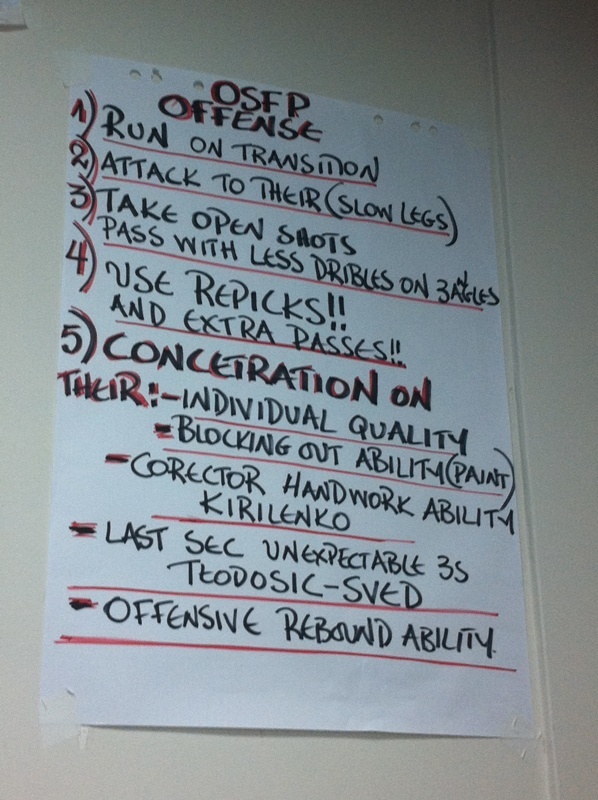 OSFP
OFFENSE
1) RUN ON TRANSITION
2) ATTACK TO THEIR (SLOW LEGS)
3) TAKE OPEN SHOTS
PASS WITH LESS DRIBLES ON 3 ANGLES
4) USE REPICKS!!
AND EXTRA PASSES!!
5) CONCETRATION ON
THEIR:-INDIVIDUAL QUALITY
-BLOCKING OUT ABILITY (PAINT)
-CORECTOR HANDWORK ABILITY
KIRILENKO
- LAST SEC UNEXPECTABLE 3S
TEODOSIC-SVED
- OFFENSIVE REBOUND ABILITY.